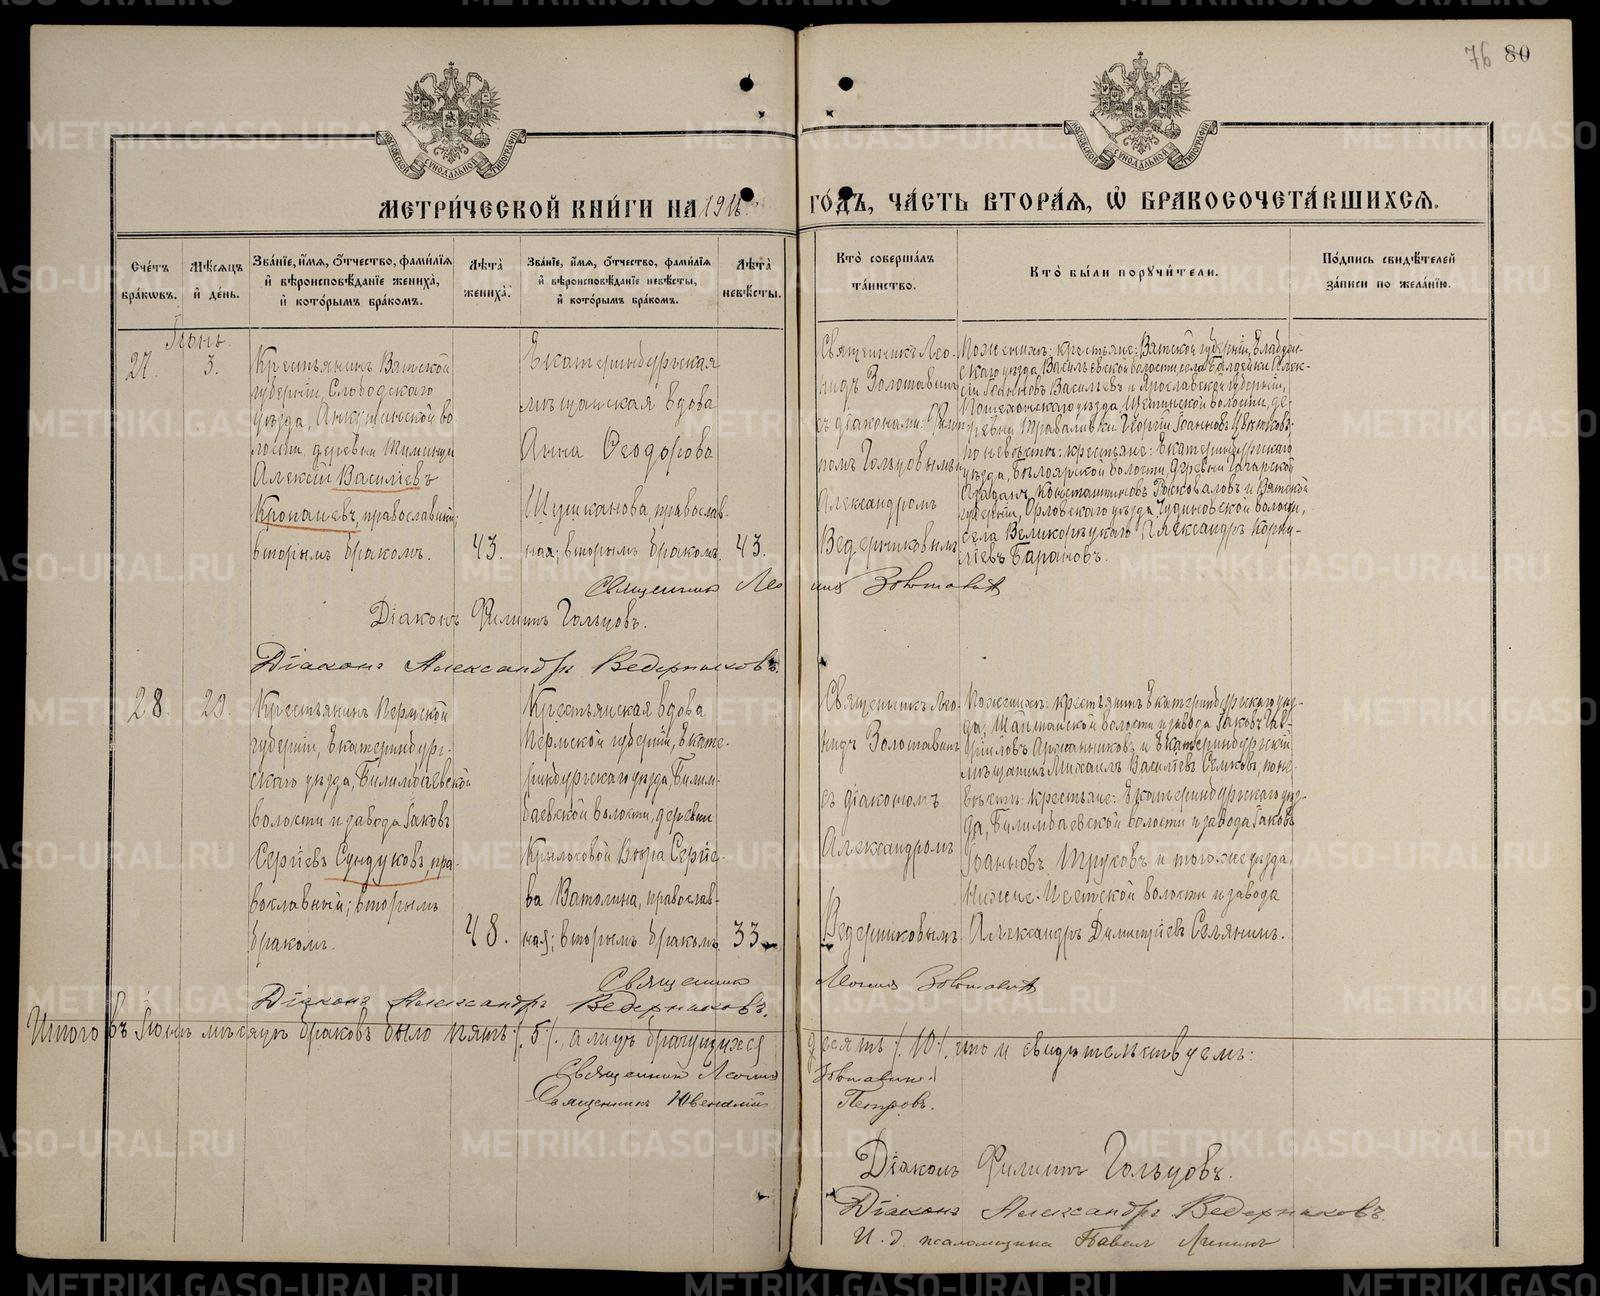 76 80
МЕТРИ́ЧЕСКОЙ КНИ́ГИ НА 1916 ГО́ДЪ, ЧА́СТЬ ВТОРА́Я, Ѡ БРАКОСОЧЕТА́ВШИХСЯ.
Сче́тъ бра́кѡвъ.
Мѣ́сяцъ и҆ де́нь.
Зва́нїе, и҆́мя, ѻ҆́тчество, фами́лїя и҆ вѣроисповѣ́данїе жениха̀, и҆ кото́рымъ бра́комъ.
Лѣ́та жениха̀.
Зва́нїе, и҆́мя, ѻ҆́тчество, фами́лїя и҆ вѣроисповѣ́данїе невѣ́сты, и҆ кото́рымъ бра́комъ.
Лѣ́та невѣ́сты.
Кто̀ соверша́лъ та́инство.
Кто̀ бы́ли порꙋчи́тели.
По́дпись свидѣ́телей за́писи по жела́нїю.
Іюнь.
27.
3.
Крестьянинъ Вятской
губерніи, Слободского
уѣзда, во-
лости, деревни
Алексій Васильевъ
Кропачевъ, православный;
вторымъ бракомъ.
43.
Екатеринбургская
мѣщанская вдова
Анна Ѳеодорова
Шушканова, православ-
ная; вторымъ бракомъ.
43.
Священникъ Лео-
нидъ Золотавинъ
съ діаконами: Филип-
помъ Гольцовымъ и
Александромъ
Ведерниковымъ
По женихѣ: крестьяне: Вятской губерніи, Елабуж-
скаго уѣзда, Васильевской волости, села Алек-
сій Іоанновъ Васильевъ и Ярославской губерніи,
Пошехонскаго уѣзда, Щетинской волости, де-
ревни Георгій Іоанновъ Цвѣтковъ;
по невѣстѣ: крестьяне: Екатеринбургскаго
уѣзда, Бѣлоярской волости, деревни
Константиновъ и Вятской
губерніи, Орловскаго уѣзда, волости,
села Великорѣцкаго Александръ Корни-
ліевъ Барановъ.
Священникъ Леонидъ Золотавинъ
Діаконъ Филиппъ Гольцовъ.
Діаконъ Александръ Ведерниковъ.
28.
29.
Крестьянинъ Пермской
губерніи, Екатеринбург-
скаго уѣзда, Билимбаевской
волости и завода Іаковъ
Сергіевъ Сундуковъ, пра-
вославный; вторымъ
бракомъ.
48.
Крестьянская вдова
Пермской губерніи, Екате-
ринбургскаго уѣзда, Билим-
баевской волости, деревни
Крылосовой Вѣра Сергіе-
ва Ватолина, православ-
ная; вторымъ бракомъ.
33.
Священникъ Лео-
нидъ Золотавинъ
съ діакономъ
Александромъ
Ведерниковымъ
По женихѣ: крестьянинъ Екатеринбургскаго уѣз-
да, Шайтанской волости и завода Іаковъ Гав-
риловъ Аржанниковъ и Екатеринбургскій
мѣщанинъ Михаилъ Васильевъ; по не-
вѣстѣ: крестьяне: Екатеринбургскаго уѣз-
да, Билимбаевской волости и завода Іаковъ
Іоанновъ и того же уѣзда,
Нижне-Исетской волости и завода
Александръ Димитріевъ Селянинъ.
Священникъ Леонидъ Золотавинъ
Діаконъ Александръ Ведерниковъ.
Итого въ Іюнѣ мѣсяцѣ браковъ было пять /. 5 /., а лицъ брачущихся десять /. 10 /. что и свидѣтельствуемъ:
Священникъ Леонидъ Золотавинъ
Священникъ Ювеналій Петровъ.
Діаконъ Филиппъ Гольцовъ.
Діаконъ Александръ Ведерниковъ.
И. д. псаломщика Павелъ
METRIKI.GASO-URAL.RU